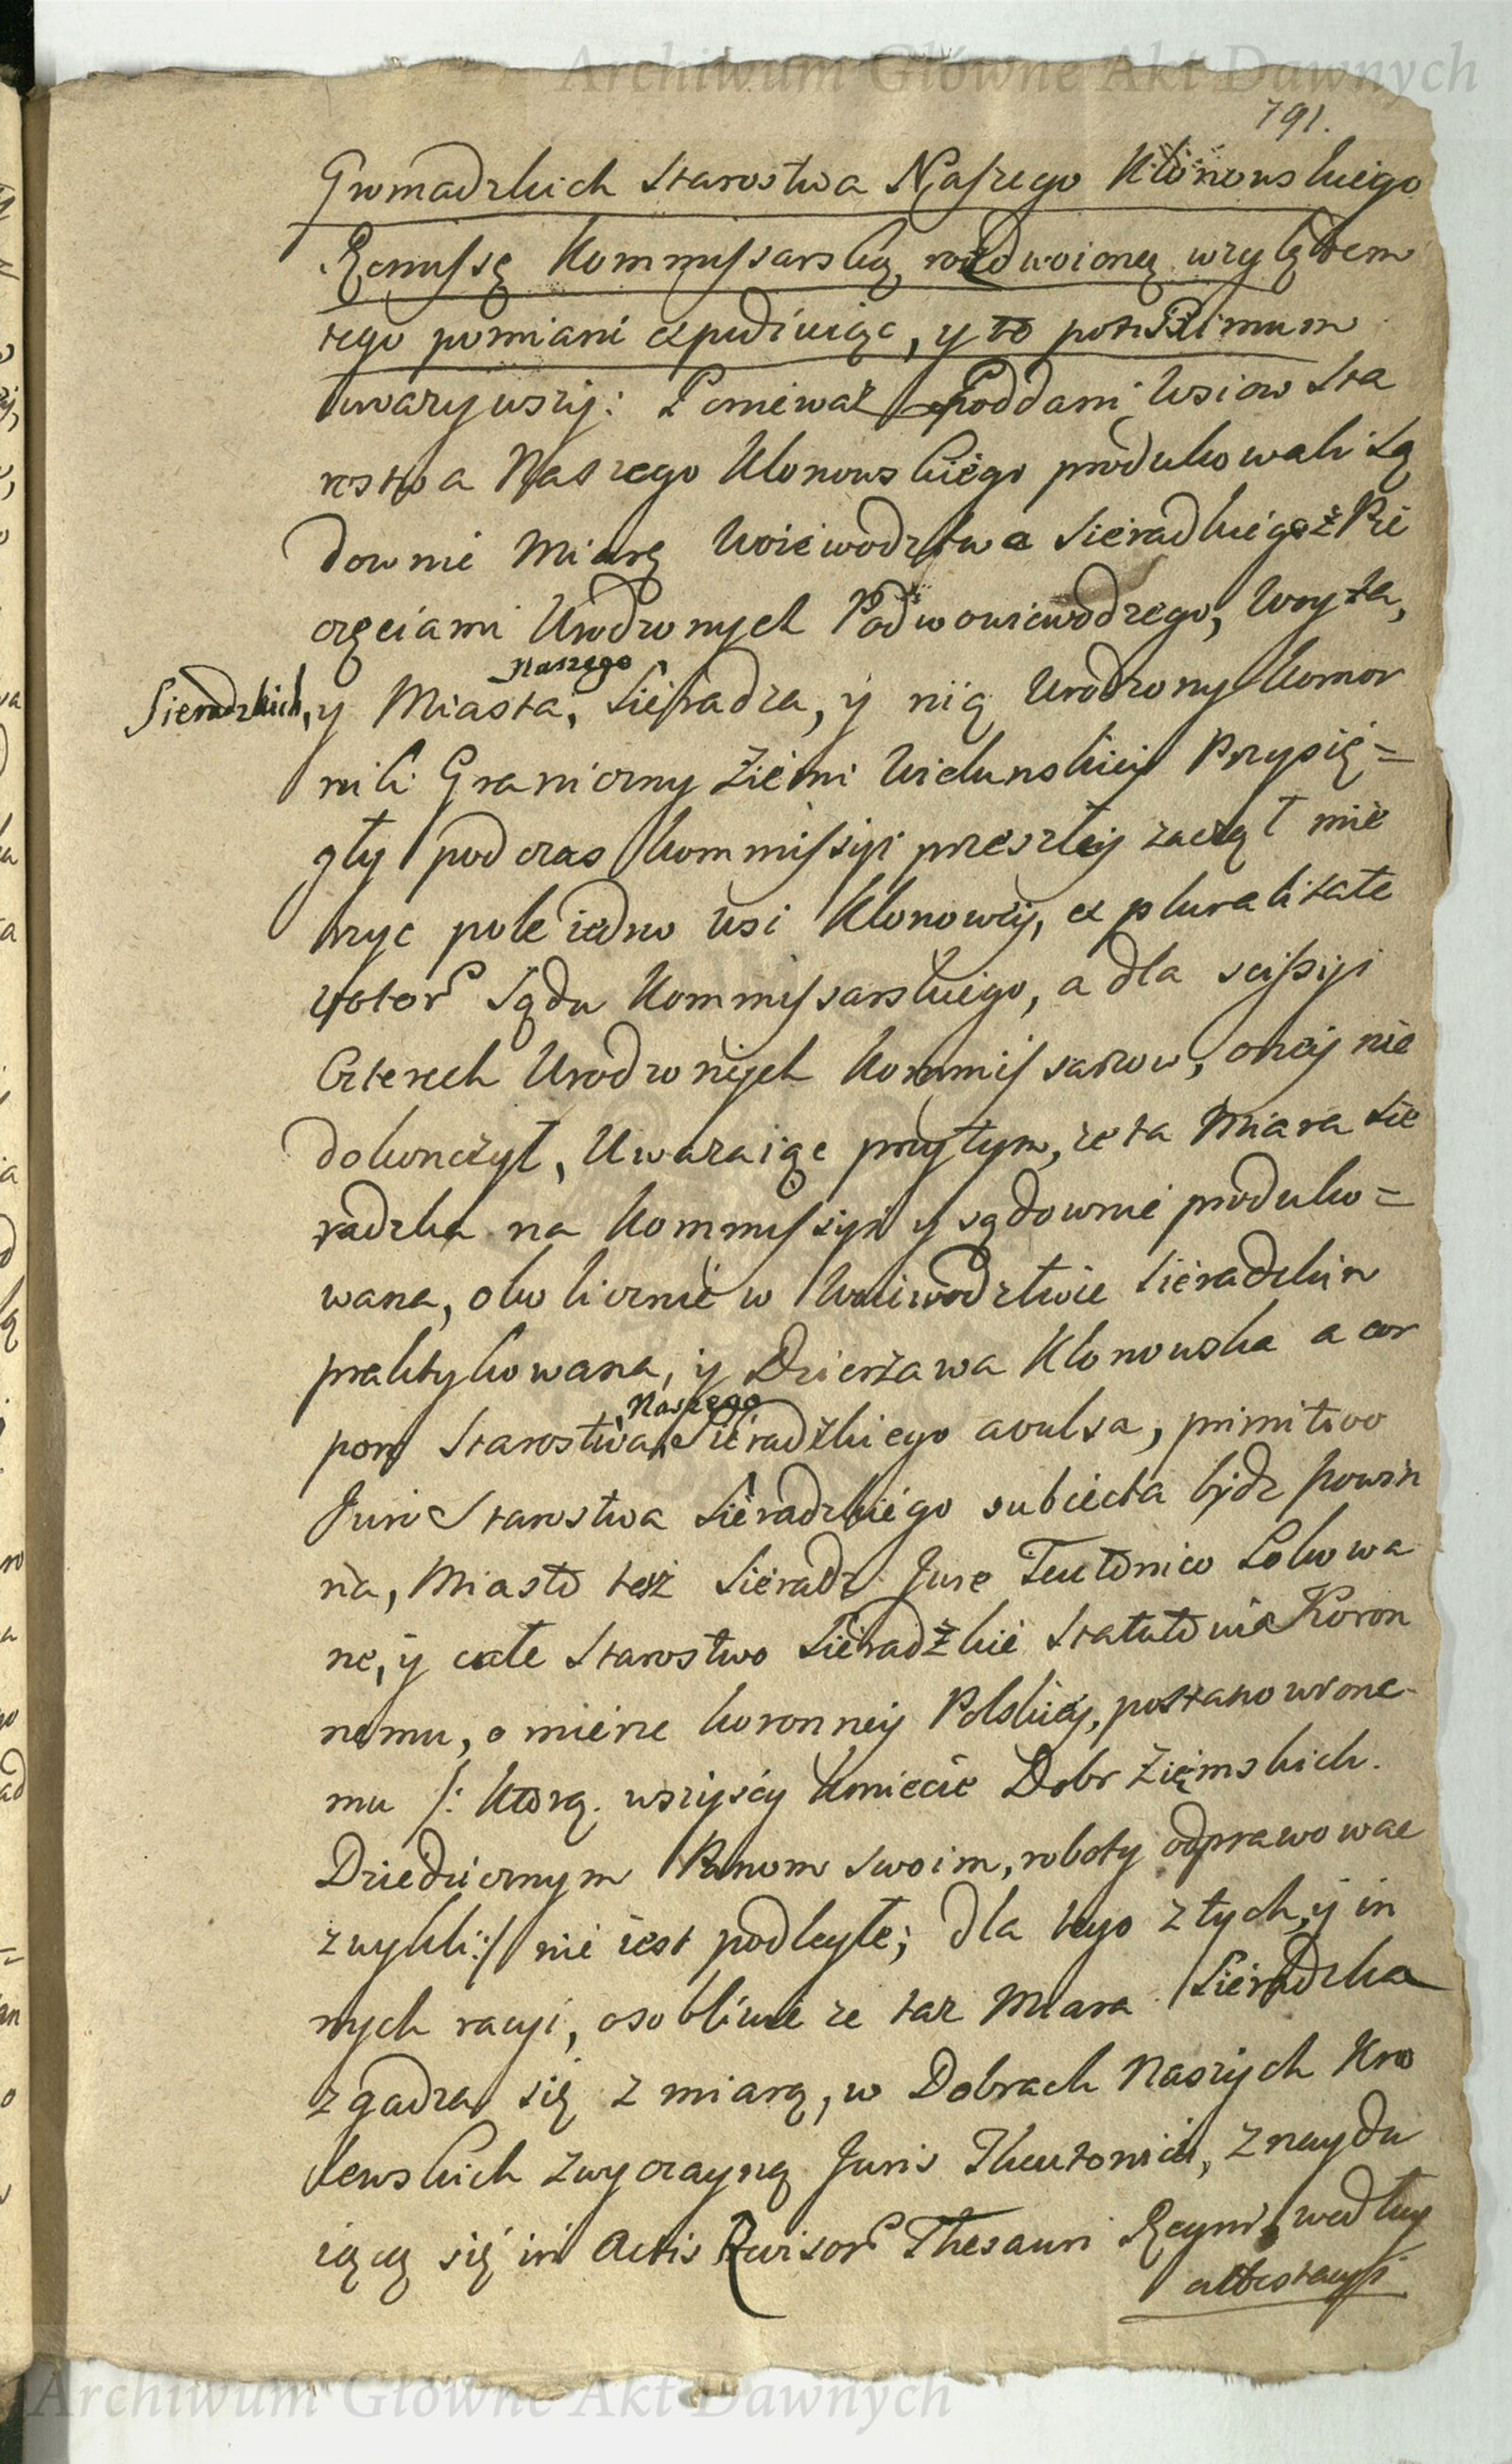 Archiwum Główne Akt Dawnych
791.
Gromadzkich Starostwa Naszego Klonowskiego
Remissę Kommissarską, rozdwoioną względem
tego pomiani expediuiąc, y to potissimum
uważywszy: Ponieważ Poddani Wsiow Sta
rostwa Naszego Klonowskiego produkowali Są
downie Miarę Woiewodztwa Sieradzkiego z Pie
częciami Urodzonych Podwoiewodzego, Woyta,
Sieradzkich, y Miasta, Naszego Sieradza, y nią Urodzony Komor
nik Graniczny Ziemi Wielunskiey Przysię=
gły podczas Kommissyi przeszłey zaczął mie
rzyc pole iedno Wsi Klonowey, ex pluralitate
votor Sądu Kommissarskiego, a dla scissyi
Czterech Urodzonych Kommissarzow, oney nie
dokonczył, Uwazaiąc przytym, ze ta Miara Sie
radzka na Kommissyi y sądownie produko=
wana, okolicznie w Woiewodztwie Sieradzkim
praktykowana, y Dzierżawa Klonowska a cor
pore Starostwa Naszego Sieradzkiego avulsa, primitivo
Juri Starostwa Sieradzkiego subiecta bydz powin
na, Miasto też Sieradz Jure Teutonico Lokowa
ne, y całe Starostwo Sieradzkie Statutowi Koron
nemu, o mierze koronney Polskiey, postanowione
mu /: Ktorą wszyscy Kmiecie Dobr Ziemskich
Dziedzicznym Panom swoim, roboty odprawowac
zwykli:/ nie iest podległe; dla tego z tych, y in
nych racyi, osobliwie ze taz Miara Sieradzka
zgadza się z miarą, w Dobrach Naszych Kro
lewskich zwyczayną Juris Theutonici, znaydu
iącą się in Actis Revisor Thesauri Regni, według
attestacyi
Archiwum Główne Akt Dawnych